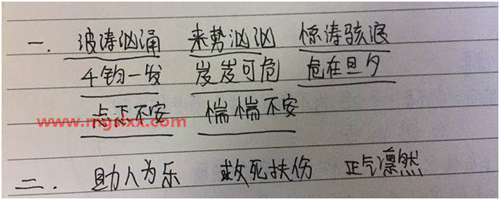 一. 波涛汹涌 来势汹汹 惊涛骇浪
千钧一发 岌岌可危 危在旦夕
忐忑不安 惴惴不安
二. 助人为乐 救死扶伤 正气凛然